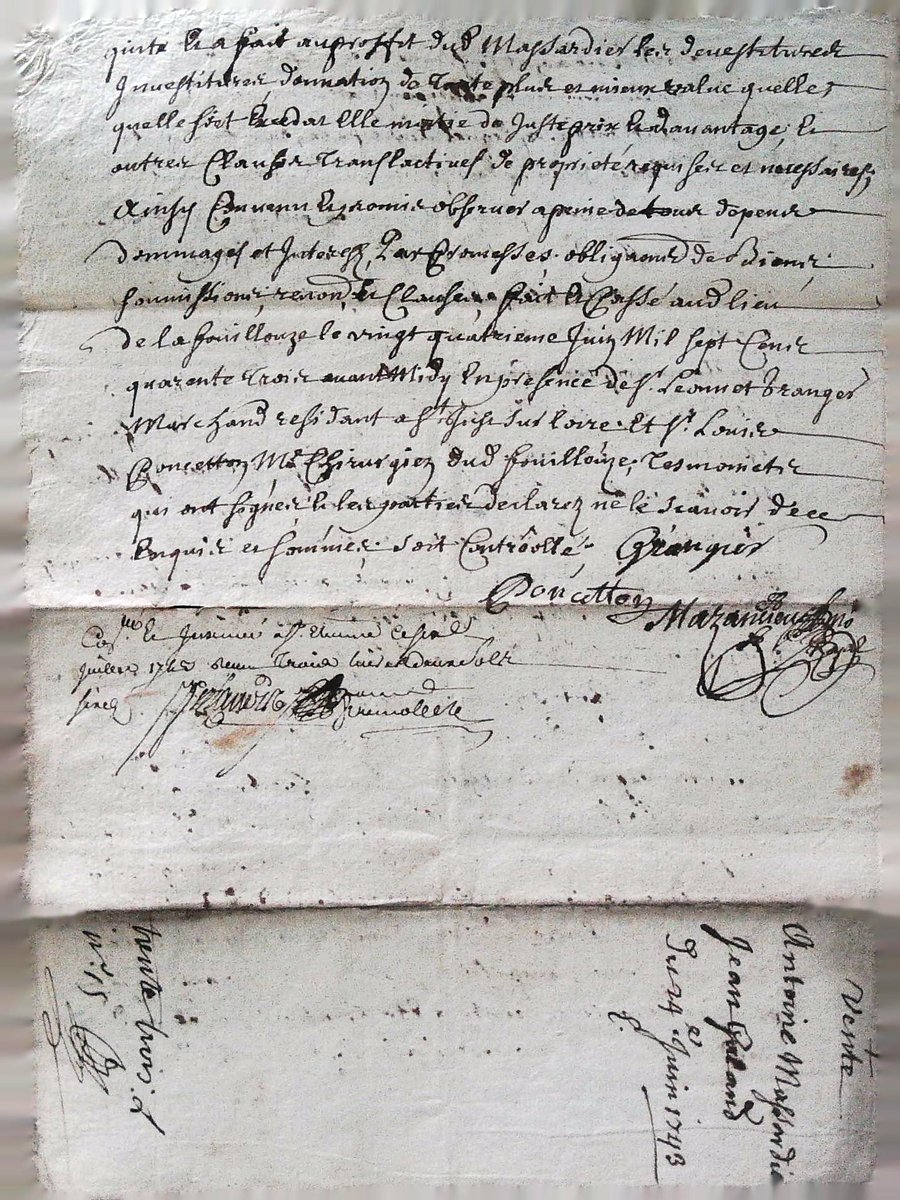 quitte et a fait au proffit dud Massardier les devestitures
Investitures, donnation de toute plus et mieux value quelles
quelle soit Excedat Elle moitie de Juste prix Et davantage, Et
autres Clauses Translactives de propriété requises et necessaires,
Ainsy Convenu Et promis observer a peine de tous depens
dommages et Interests, Par Promesses, obligaons de Biens,
soumissions, renons, Et Clauses, fait Et Passé aud lieu
de la fouillouze le vingt quatrieme Juin Mil sept Cents
quarente Trois avant Midy En presence de sr. Leonnet Granger
Marchand residant a st Just sur loire Et sr. Louis
Poncetton Me Chirurgien dud fouillouze, Tesmoins
qui ont signes Et les parties declarez ne le scavoir de ce
Enquis et sommes, soit Controôllé. Grangier
Poncetton Mazancieu
le a st. Etienne
Juillet 1743 Receu Trois livres
Vente
Antoine Massardie
Jean Galand
Du 24e Juin 1743
trente trois
n.o 15